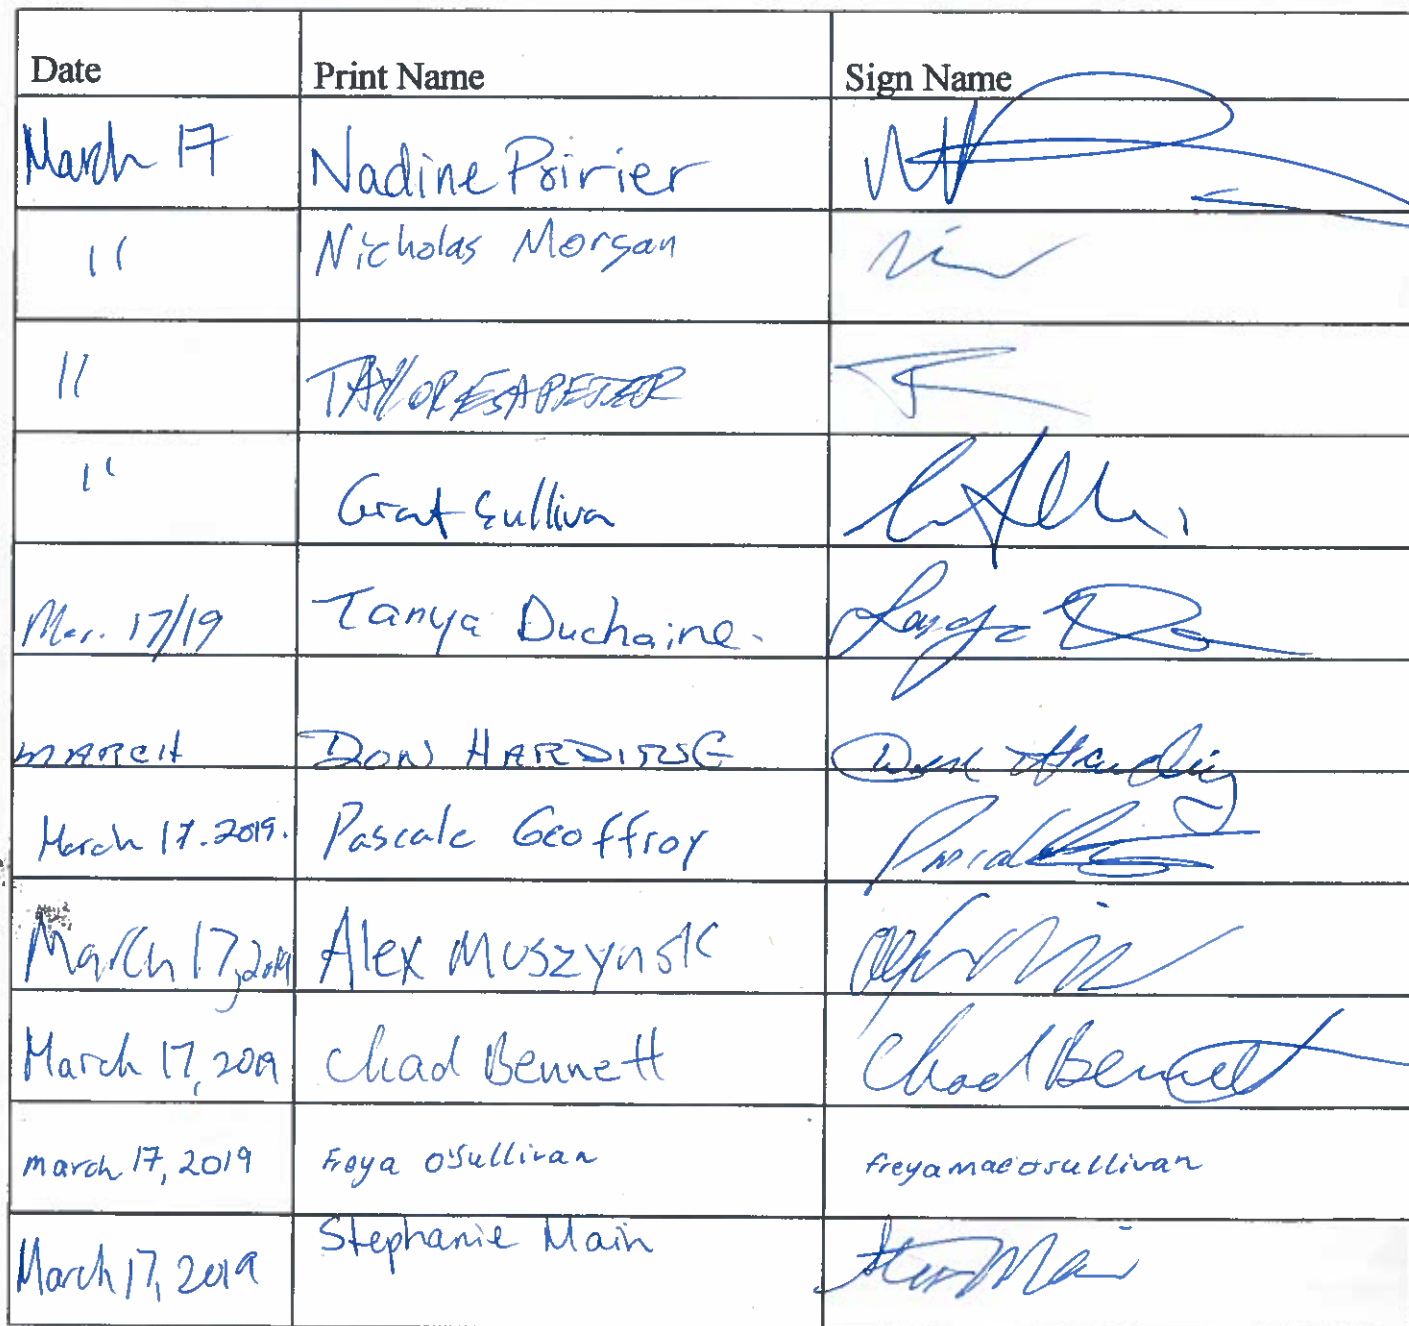 Date Print Name Sign Name
March 17 Nadine Poirier
" Nicholas Morgan
" TAYLOR
" Grant Sullivan
Mar. 17/19 Tanya Duchaine. Tanya
MARCH DON HARDING Don Harding
March 17. 2019. Pascale Geoffroy
March 17, 2019 Alex Muszynsk
March 17, 2019 Chad Bennett Chad Bennett
march 17, 2019 Freya O'Sullivan freyamaeosullivan
March 17, 2019 Stephanie Main